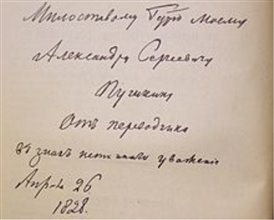 Милостивому Гдрю Моему
Александру Сергеевичу
Пушкину
Отъ переводчика
Въ знакъ истиннаго уваженія
Апрѣля 26
1828.